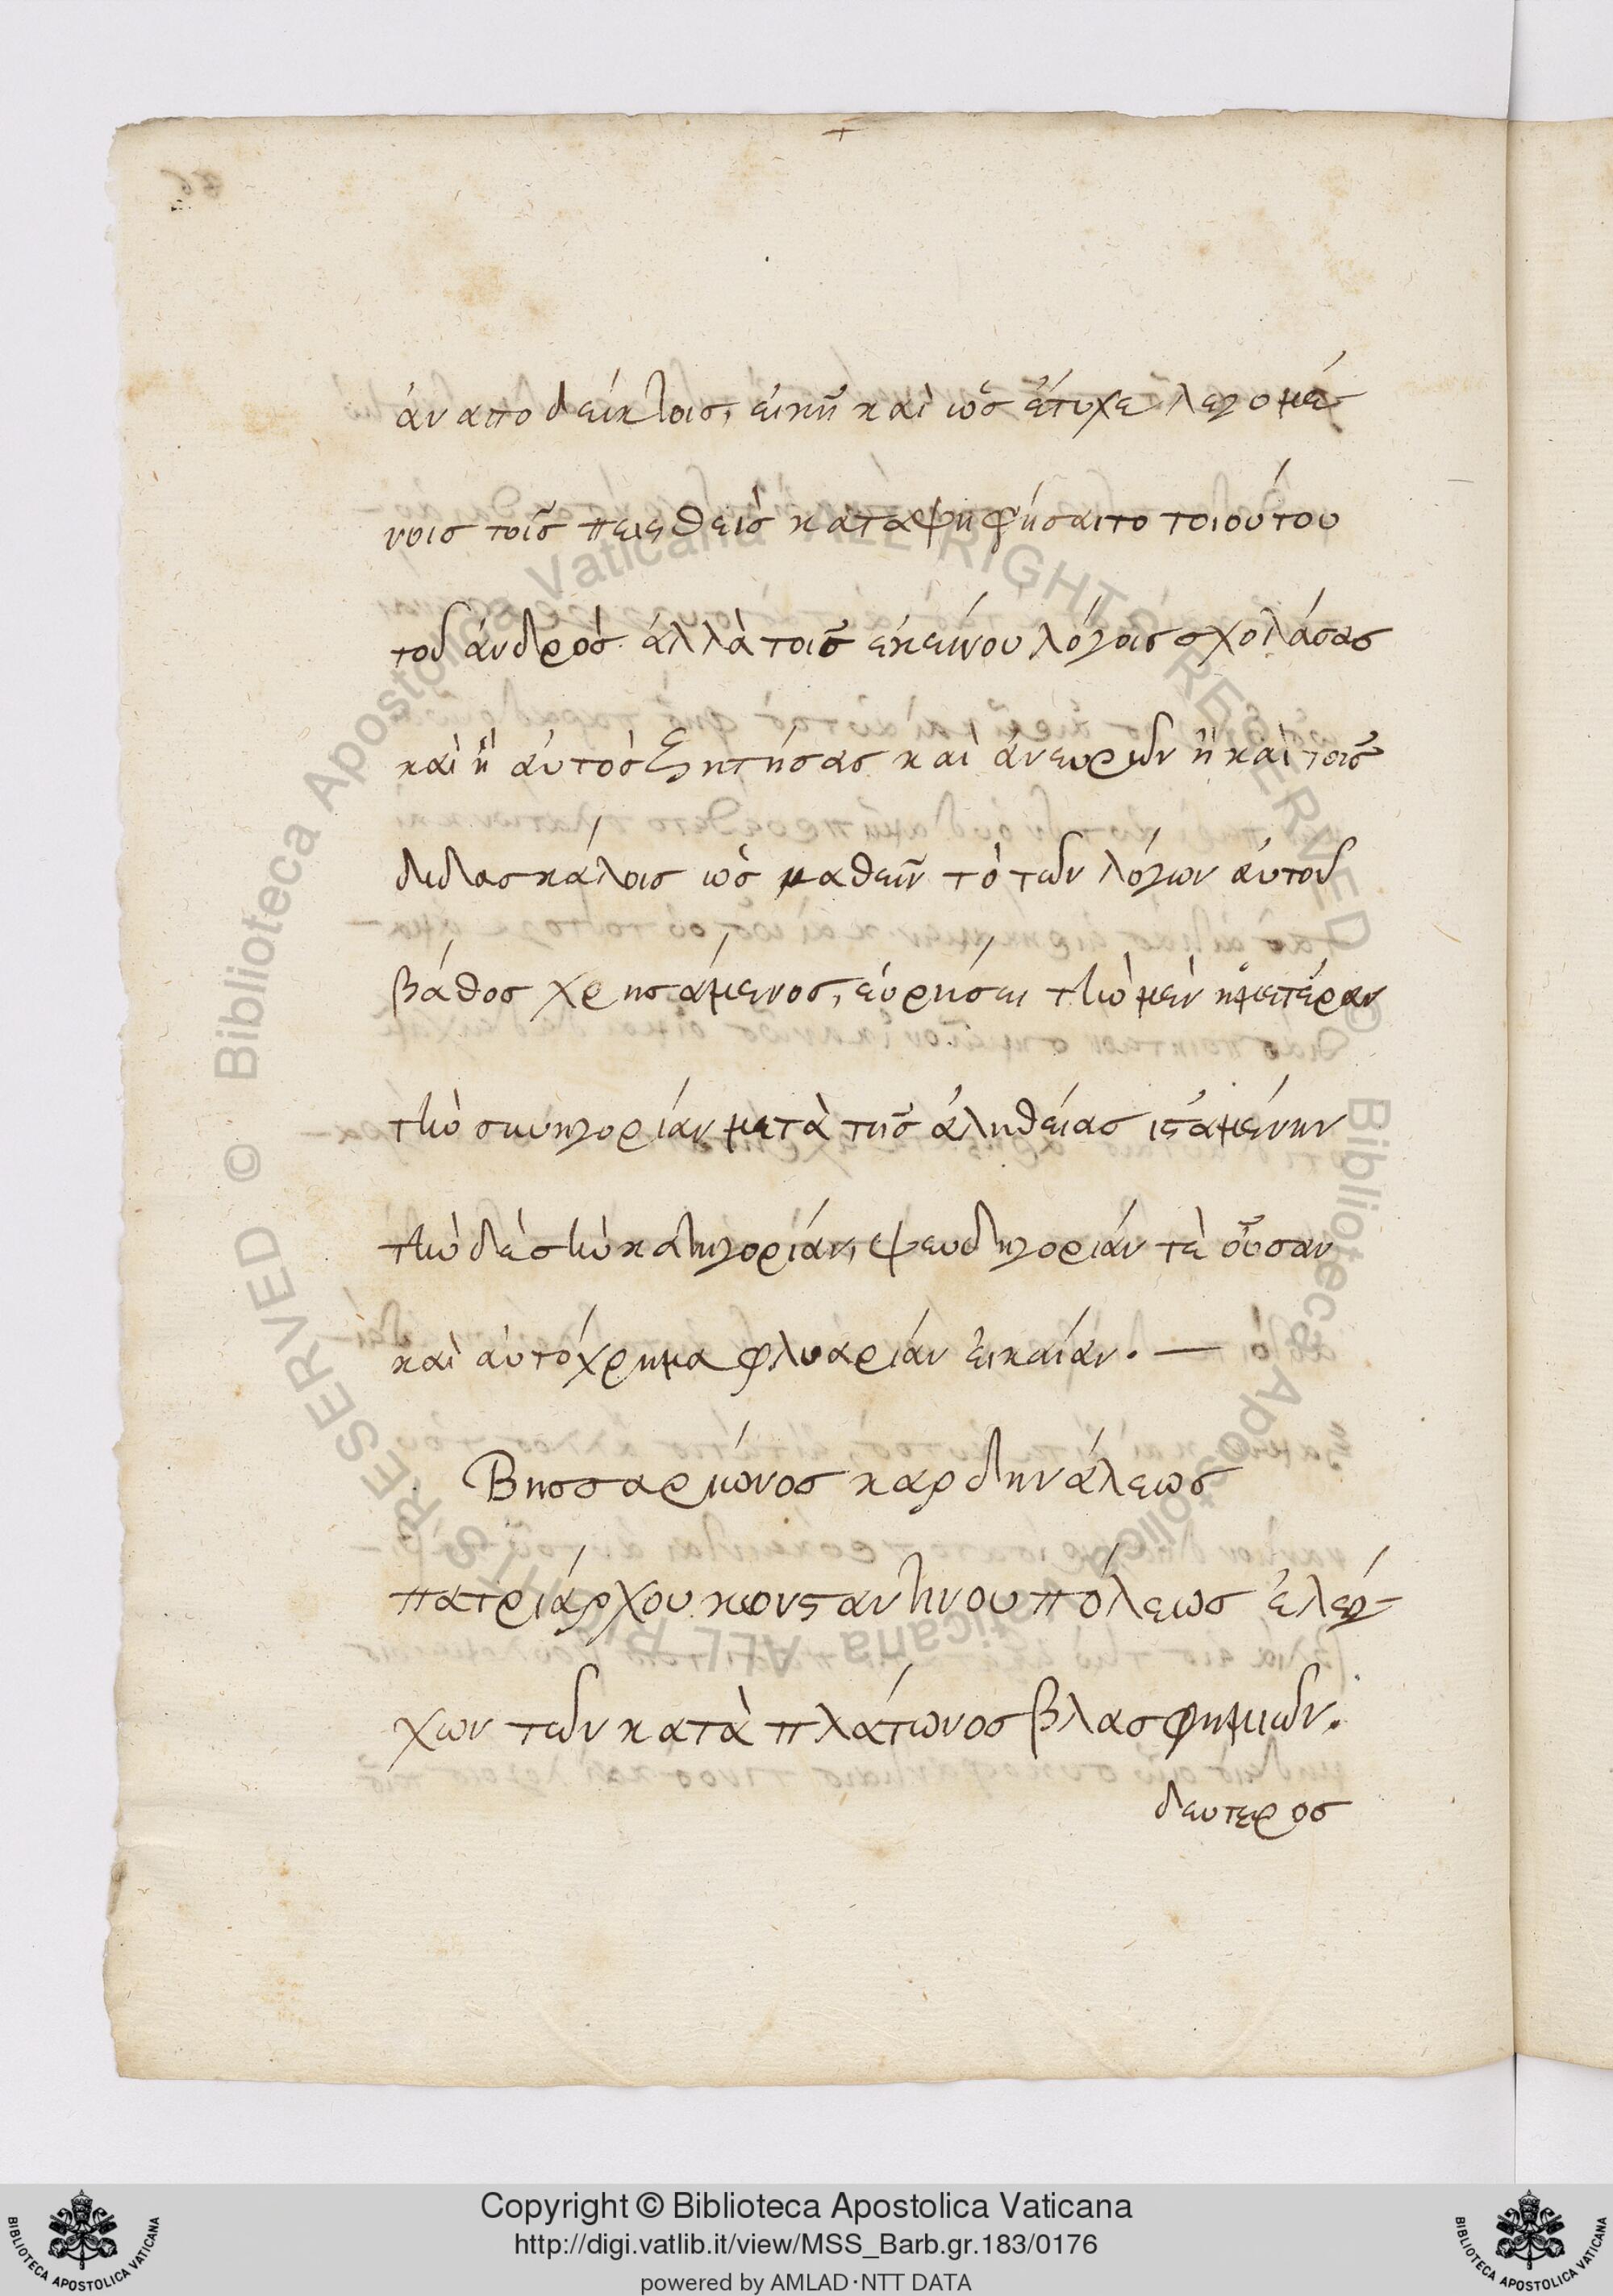 ἀναποδείκτοις, εἰκῆ καὶ ὡς ἔτυχε λεγομέ-
νοις τοῖς πεισθεὶς καταψηφίσαιτο τοιούτου
τοῦ ἀνδρός· ἀλλὰ τοῖς ἐκείνου λόγοις σχολάσας
καὶ ἢ αὐτὸς ζητήσας καὶ ἀνευρὼν ἢ καὶ τοῖς
διδασκάλοις ὡς μαθεῖν τὸ τῶν λόγων αὐτοῦ
βάθος χρησάμενος, εὑρήσει τὴν μὲν ἡμετέραν
τὴν συνηγορίαν μετὰ τῆς ἀληθείας ἱσταμένην
τὴν δὲ σὴν κατηγορίαν, ψευδηγορίαν τὲ οὖσαν
καὶ αὐτόχρημα φλυαρίαν εἰκαίαν. —
Βησσαρίωνος καρδηνάλεως
πατριάρχου κωνσταντινουπόλεως ἐλέγ-
χων τῶν κατὰ πλάτωνος βλασφημιῶν.
δευτερος
Copyright © Biblioteca Apostolica Vaticana
http://digi.vatlib.it/view/MSS_Barb.gr.183/0176
powered by AMLAD·NTT DATA
BIBLIOTECA APOSTOLICA VATICANA
BIBLIOTECA APOSTOLICA VATICANA
© Biblioteca Apostolica Vaticana ALL RIGHTS RESERVED
© Biblioteca Apostolica Vaticana ALL RIGHTS RESERVED